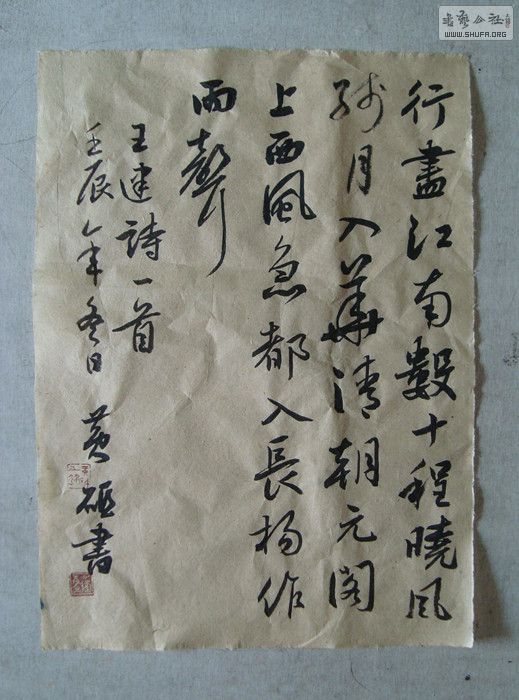 行盡江南數十程曉風
殘月入華清朝元閣
上西風急都入長楊作
雨聲
王建詩一首
壬辰年冬日
黄砸書
WWW.SHUFA.ORG